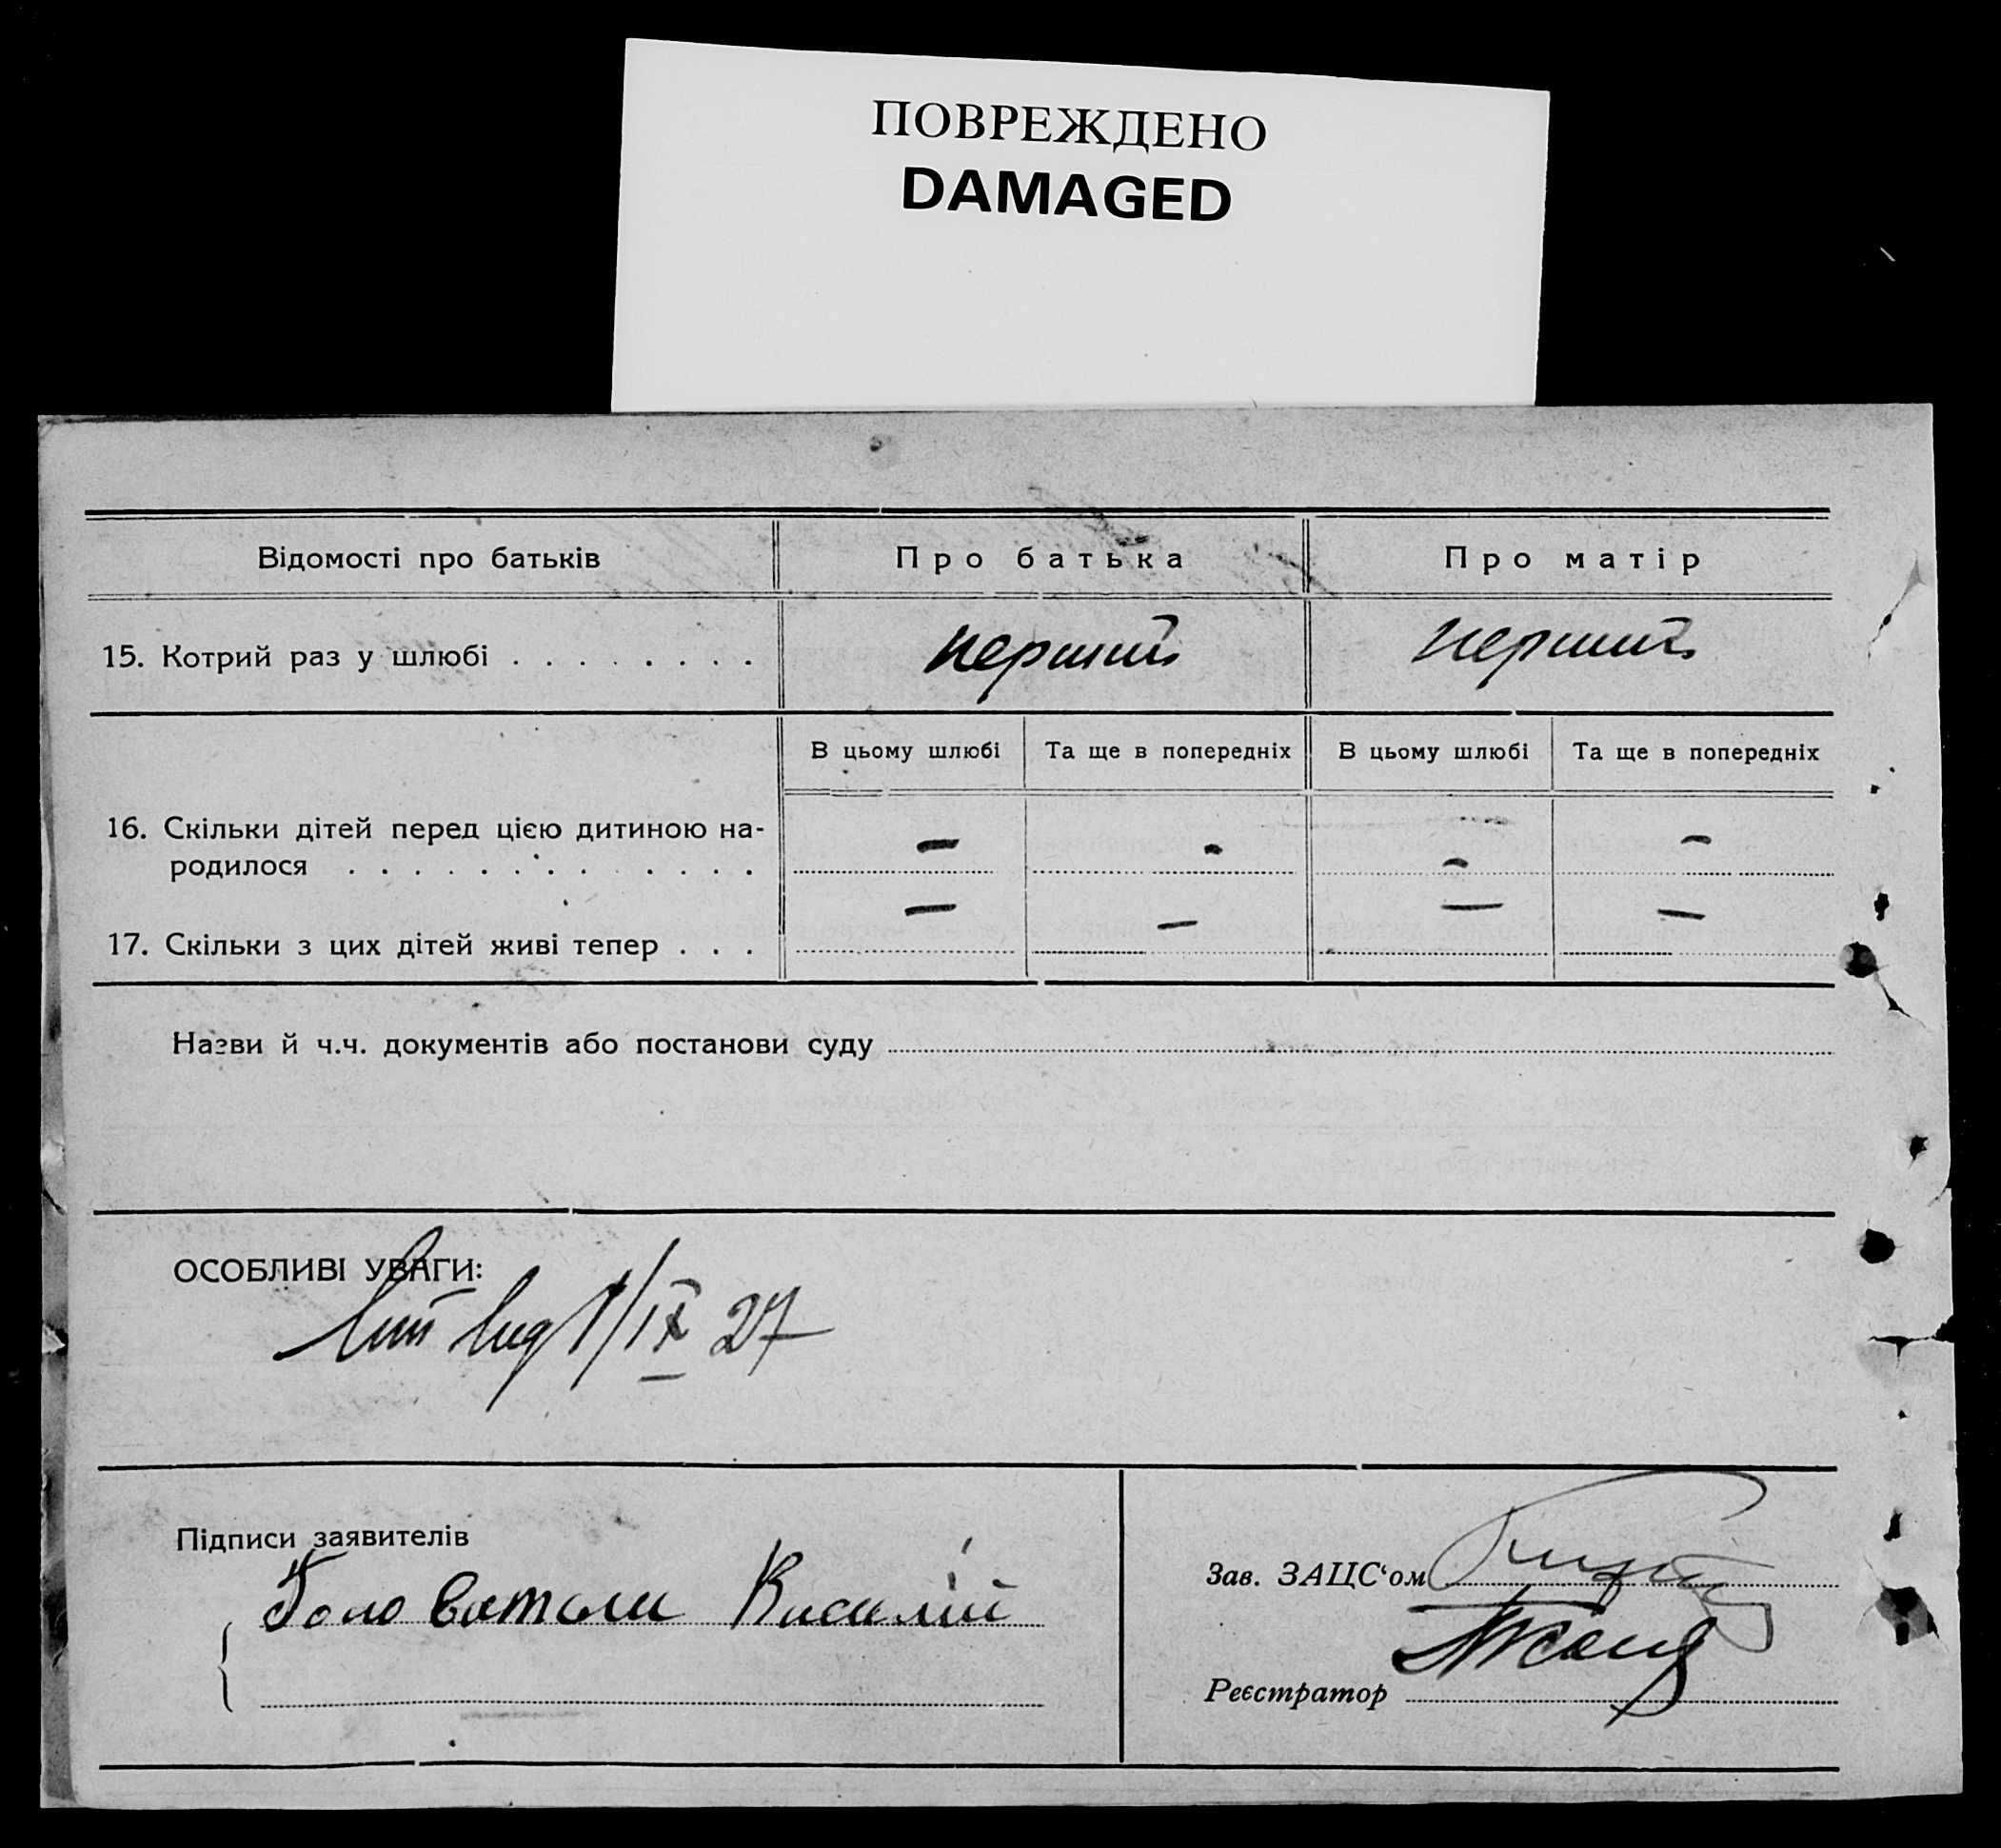 ПОВРЕЖДЕНО
DAMAGED
Відомості про батьків
Про батька
Про матір
15. Котрий раз у шлюбі . . . . . . . .
перший
перший
В цьому шлюбі
Та ще в попередніх
В цьому шлюбі
Та ще в попередніх
16. Скільки дітей перед цією дитиною на-
родилося . . . . . . . . . . . . .
— - - -
17. Скільки з цих дітей живі тепер . . .
— — — —
Назви й ч.ч. документів або постанови суду
ОСОБЛИВІ УВАГИ:
1/IX 27
Підписи заявителів
Василій
Зав. ЗАЦС‘ом
Реєстратор